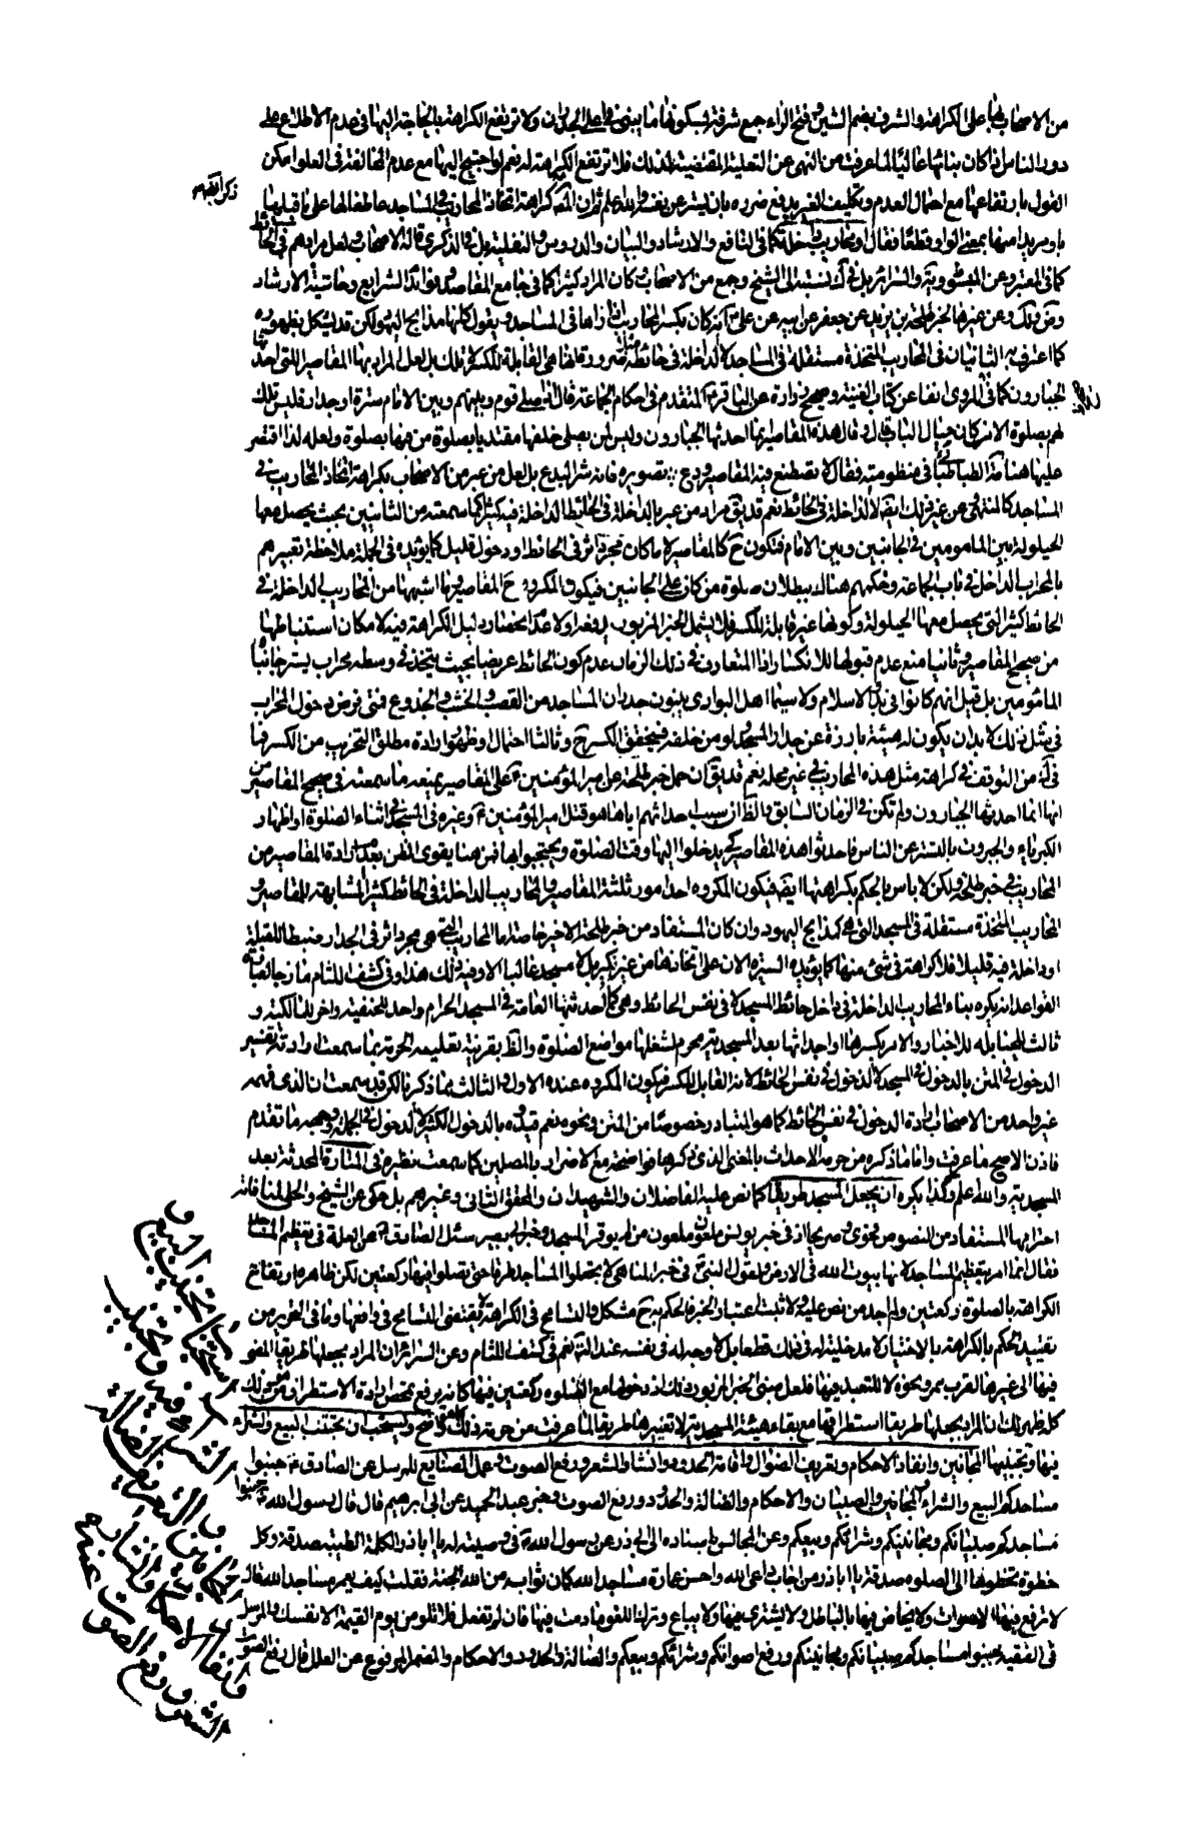 من الاصحاب هنا على الكراهة والشرف بضم الشين وفتح الراء جمع شرفة بسكونها ما يبنى في اعلى الجدران ولا ترتفع الكراهة بالحاجة اليها في عدم الاطلاع على
دور الناس اذا كان بنائها عاليا لما عرفت من النهى عن التعلية المقتضية لذلك فلا ترتفع الكراهة له نعم لو احتيج اليها مع عدم المخالفة في العلو امكن
القول بارتفاعها مع احتمال العدم وتكليف الغير بدفع ضرره بان يستر عن نفسه والله اعلم ثم ان المص كراهة اتخاذ المحاريب في المساجد عاطفا لها على ما قبلها
باو مريدا منها معنى الواو قطعا فقال او محاريب داخلة كما في النافع والارشاد والبيان والدروس والنفلية بل في الذكرى قاله الاصحاب ولعل مرادهم في الحائط
كما في المعتبر وعن المبسوط ويه والسرائر بل في ك نسبته الى الشيخ وجمع من الاصحاب كان المراد كثيرا كما في جامع المقاصد وفوائد الشرايع وحاشية الارشاد
وض وك وعن غيرها لخبر طلحة بن زيد عن جعفر عن ابيه عن على انه كان يكسر المحاريب اذا راها في المساجد ويقول كانها مذابح اليهود لكن قد يشكل بظهوره
كما اعترف به الثانيان في المحاريب المتخذة مستقلة في المساجد لا الداخلة في حائطه ضرورة انها هي القابلة للكسر لا تلك بل لعل المراد بها المقاصير التي احدثها
الجبارون كما في المروى انفا عن كتاب الغيبة وصحيح زرارة عن الباقر المتقدم في احكام الجماعة قال ان صلى قوم وبينهم وبين الامام سترة او جدار فليس تلك
لهم بصلوة الا من كان حيال الباب قال وقال هذه المقاصير انما احدثها الجبارون وليس لمن يصلى خلفها مقتديا بصلوة من فيها صلوة ولعله لذا اقتصر
عليها العلامة الطباطبائي في منظومته فقال لا تصطنع فيه المقاصير ودع تصويره فانه شر البدع بل لعل من عبر من الاصحاب بكراهة اتخاذ المحاريب في
المساجد كالمنتهى عن غير ذلك ايضا لا الداخلة في الحائط نعم قد يق مراد من عبر بالداخلة في الحائط الداخلة فيه كثيرا كما سمعته من الثانيين بحيث يحصل معها
الحيلولة بين المامومين في الجانبين وبين الامام فتكون ح كالمقاصير لا ما كان مجرد اثر في الحائط او دخول قليل كما يؤيده في الجملة ملاحظة تعبيرهم
بالمحراب الداخل في باب الجماعة وحكمهم هناك ببطلان صلوة من كان على الجانبين فيكون المكروه ح المقاصير وما اشبهها من المحاريب الداخلة في
الحائط كثيرا التي يحصل معها الحيلولة وكونها غير قابلة للكسر فلا يشمل الخبر المزبور يدفعه اولا عدم انحصار دليل الكراهة فيه لامكان استنباطها
من صحيح المقاصير وثانيا منع عدم قبولها للانكسار اذ المتعارف في ذلك الزمان عدم كون الحائط عريضا بحيث يتخذ في وسطه محراب يستر جانبا
المامومين بل قيل انهم كانوا في بدو الاسلام ولا سيما اهل البوادي يبنون جدران المساجد من القصب والخشب والجذوع فمتى فرض دخول المحراب
في مثل ذلك لا بد ان يكون له هيئة بارزة عن جدار المسجد ولو من خلفه فيتحقق الكسر ح وثالثا احتمال او ظهور ارادة مطلق التخريب من الكسر فما
في ك من التوقف في كراهة مثل هذه المحاريب في غير محله نعم قد يق ان حمل خبر طلحة عن امير المؤمنين على المقاصير يمنعه ما سمعته في صحيح المقاصير من
انها انما احدثها الجبارون ولم تكن في الزمان السابق والظ ان سبب احداثهم اياها هو قتل امير المؤمنين وغيره في المسجد في اثناء الصلوة او اظهار
الكبرياء والجبروت بالستر عن الناس فاحدثوا هذه المقاصير كي يدخلوا اليها وقت الصلوة ويحتجبوا بها فمن هنا يقوى الظن بعدم ارادة المقاصير من
المحاريب في خبر طلحة ولكن لا باس بالحكم بكراهتها ايضا فيكون المكروه احد امور ثلثة المقاصير والمحاريب الداخلة في الحائط كثيرا المشابهة للمقاصير و
المحاريب المتخذة مستقلة في المسجد التي هي كمذابح اليهود وان كان المستفاد من خبر طلحة الاخير خاصة اما المحاريب التي هي مجرد اثر في الجدار ضبطا للقبلة
او داخلة فيه قليلا فلا كراهة في شئ منها كما يؤيده السيرة الان على اتخاذها من غير نكير بل لا مسجد غالبا الا وفيه ذلك هذا وفي كشف اللثام مازجا لعبارة
القواعد انه يكره بناء المحاريب الداخلة في داخل حائط المسجد لا في نفس الحائط وهي كما احدثتها العامة في المسجد الحرام واحد للحنفية واخر للمالكية و
ثالث للحنابلة للاخبار والامر بكسرها او احداثها بعد المسجدية محرم لشغلها مواضع الصلوة والظ بقرينة تعليمه الحرمة بما سمعت ارادته تفسير
الدخول في المتن بالدخول في المسجد لا الدخول في نفس الحائط لانه القابل للكسر فيكون المكروه عنده الاول والثالث مما ذكرنا لكن قد سمعت ان الذي فهمه
غير واحد من الاصحاب ارادة الدخول في نفس الحائط كما هو المتبادر خصوصا من المتن ونحوه نعم قيدوه بالدخول الكثير لا الدخول في الجملة وجهه ما تقدم
فاذن الاصح ما عرفت واما ما ذكره من حرمة الاحداث بالمعنى الذي ذكره فواضحة مع الاضرار بالمصلين كما سمعت نظيره في المنارة المحدثة بعد
المسجدية والله اعلم وكذا يكره ان يجعل المسجد طريقا كما نص عليه الفاضلان والشهيدان والمحقق الثاني وغيرهم بل حكى عن الشيخ والحلى لمنافاته
احترامها المستفاد من النصوص فحوى وصريحا اذ في خبر يونس ملعون ملعون من لم يوقر المسجد وخبر ابي بصير سئل الصادق عن العلة في تعظيم المساجد
فقال انما امر بتعظيم المساجد لانها بيوت الله في الارض ولقول النبى في خبر المناهى لا تجعلوا المساجد طرقا حتى تصلوا فيها ركعتين لكن ظاهره ارتفاع
الكراهة بالصلوة ركعتين ولم اجد من نص عليه ولا ثبت اعتبار الخبر فالحكم به ح مشكل والتسامح في الكراهة لا يقتضى التسامح في رافعها وما في الخبر من
تقييد الحكم بالكراهة بالاختيار لا مدخلية له في ذلك قطعا بل لا وجه له في نفسه عند التامل نعم في كشف اللثام وعن السرائر ان المراد بجعلها طريقا المضى
فيها الى غيرها القرب ممر ونحوه لا للتعبد فيها فلعل مبنى الخبر المزبور ذلك اذ دخولها مع الصلوة ركعتين فيها كانه يرفع محض ارادة الاستطراق ومن ذلك
كله ظهر لك ان المراد بجعلها طريقا استطراقها مع بقاء هيئة المسجدية لا تغييرها طريقا لما عرفت من حرمة ذلك واضح ويستحب ان يجتنب البيع والشراء
فيها وتجنيبها المجانين وانفاذ الاحكام وتعريف الضوال واقامة الحدود وانشاد الشعر ورفع الصوت وعمل الصنايع للمرسل عن الصادق جنبوا
مساجدكم البيع والشراء والمجانين والصبيان والاحكام والضالة والحدود ورفع الصوت وخبر عبد الحميد عن ابي ابرهيم قال قال رسول الله جنبوا
مساجدكم صبيانكم ومجانينكم وشرائكم وبيعكم وعن المجالس باسناده الى ابي ذر عن رسول الله في وصيته له يا اباذر الكلمة الطيبة صدقة وكل
خطوة تخطوها الى الصلوة صدقة يا اباذر من اجاب داعى الله واحسن عمارة مساجد الله كان ثوابه من الله الجنة فقلت كيف يعمر مساجد الله قال
لا ترفع فيها الاصوات ولا يخاض فيها بالباطل ولا يشترى فيها ولا يباع واترك اللغو ما دمت فيها فان لم تفعل فلا تلومن يوم القيمة الا نفسك والمرسل
في الفقيه جنبوا مساجدكم صبيانكم ومجانينكم ورفع اصواتكم وشرائكم وبيعكم والضالة والحدود والاحكام والمضمر المرفوع عن العلل قال رفع الصوت